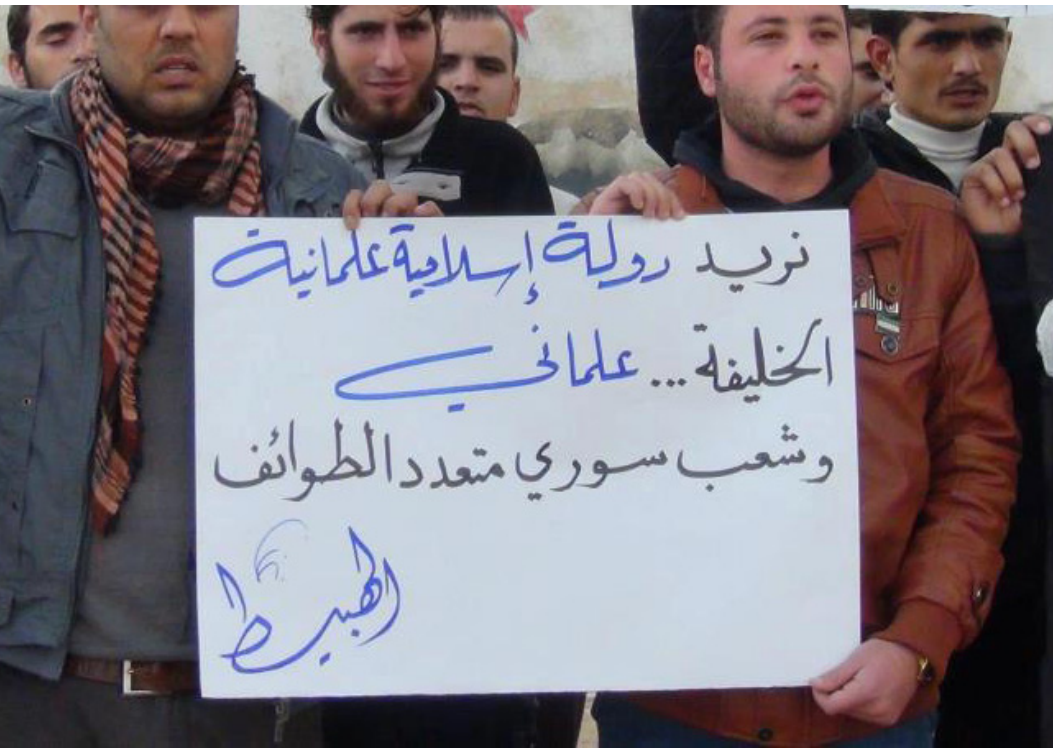 نريد دولة إسلامية علمانية
الخليفة ... علماني
وشعب سوري متعدد الطوائف
الهبيط